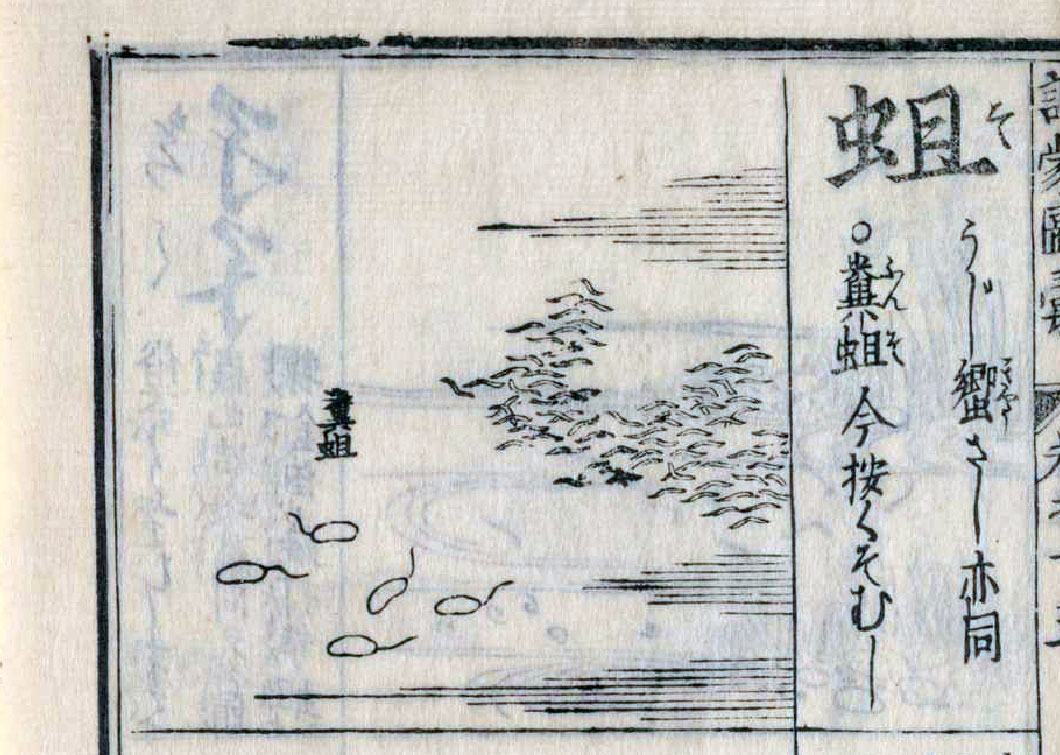 蛆 そ
うじ 蠁 きやう さし 亦同
○糞蛆 ふんそ 今按くそむし
糞蛆